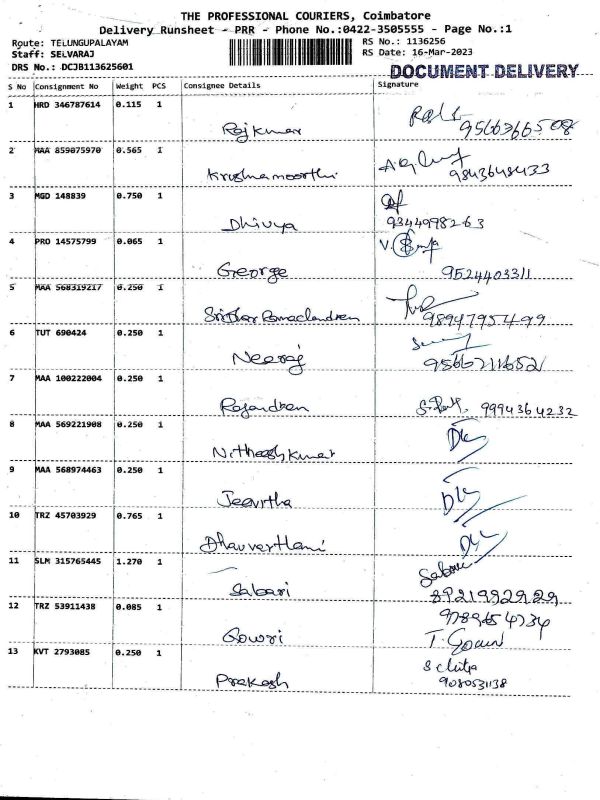 THE PROFESSIONAL COURIERS, Coimbatore
Delivery Runsheet - PRR - Phone No.:0422-3505555 - Page No.:1
Route: TELUNGUPALAYAM RS No.: 1136256
Staff: SELVARAJ RS Date: 16-Mar-2023
DRS No.: DCJB113625601 DOCUMENT DELIVERY
S No Consignment No Weight PCS Consignee Details Signature
1 HRD 346787614 0.115 1
Rajkumar 9566366508
2 MAA 859075970 0.565 1
Krishnamoorthi 9843648433
3 MGD 148839 0.750 1
Dhivya 9344998263
4 PRO 14575799 0.065 1
George 9524403311
5 MAA 568319217 0.250 1
Sridhar Ramachandren 9894795499
6 TUT 690424 0.250 1
Neeraj 9566711652
7 MAA 100222004 0.250 1
Rajandren 9994364232
8 MAA 569221908 0.250 1
Nitheesh kumar
9 MAA 568974463 0.250 1
Jeevitha
10 TRZ 45703929 0.765 1
11 SLM 315765445 1.270 1
Sabari 8921992929
12 TRZ 53911438 0.085 1 9789654734
Gowri
13 KVT 2793085 0.250 1
Prakash 9080531138